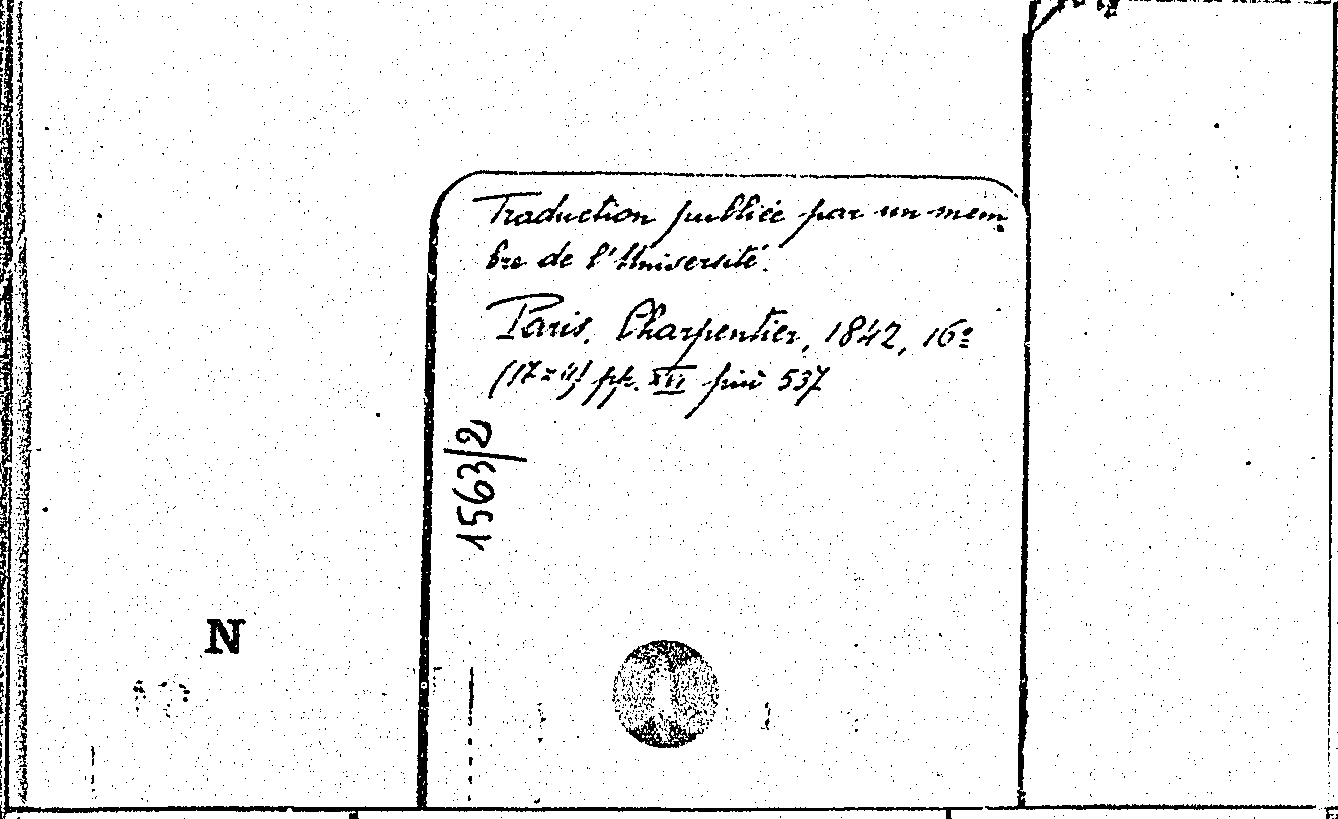 Traduction publiée par un mem
bre de l'Université.
Paris, Charpentier, 1842, 16º
pp. XII più 537
1563/2
N